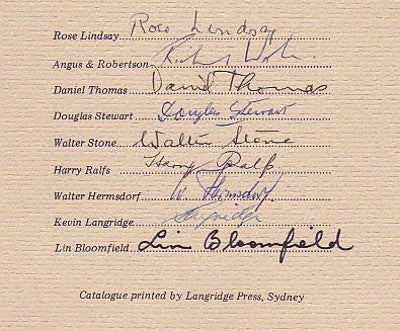 Rose Lindsay Rose Lindsay
Angus & Robertson
Daniel Thomas Daniel Thomas
Douglas Stewart Douglas Stewart
Walter Stone Walter Stone
Harry Ralfs Harry Ralfs
Walter Hermsdorf W Hermsdorf
Kevin Langridge
Lin Bloomfield Lin Bloomfield
Catalogue printed by Langridge Press, Sydney